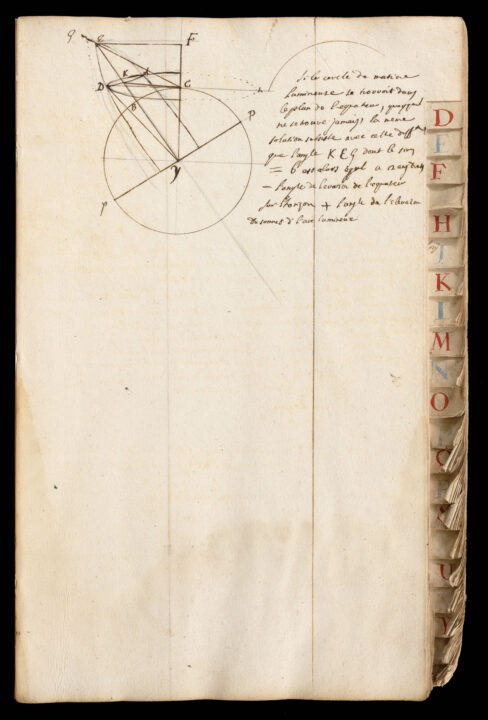 g
e
F
K
D
C
B
h
P
y
p
Si le cercle de matiere
Lumineuse se trouvoit dans
le plan de l'equateur,
ne se trouve jamais) la meme
solution subsiste avec cette
que l'angle K E G dont le sin
= b est alors egal a
– l'angle de l'equateur
sur l'horizon + l'angle de l'elevation
du sommet d l'arc lumineux
D
E
F
H
J
K
I
M
N
O
Q
U
V